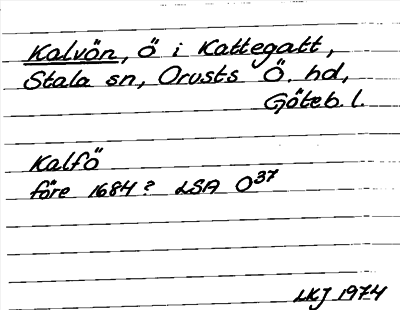 Kalvön, Ö i Kattegatt,
Stala sn, Orusts Ö. hd,
Göteb. l.
Kalfö
före 1684? LSA O37
LKJ 1974